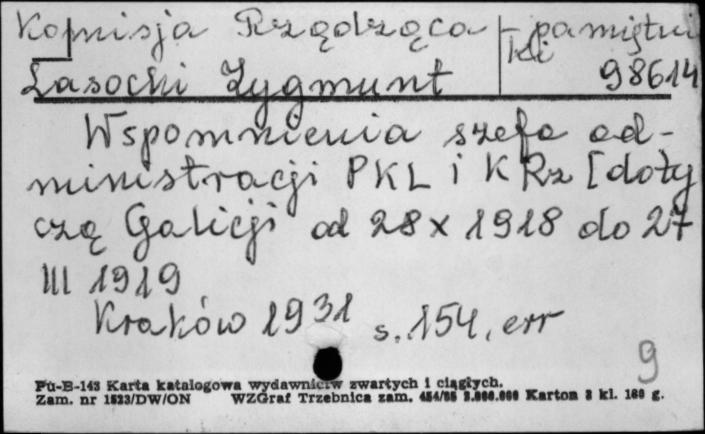 Komisja Rządząca - pamiętni
ki
Lasocki Zygmunt 98614
Wspomnienia szefa ad-
ministracji PKL i KRz [doty
czą Galicji od 28 X 1918 do 27
III 1919
Kraków 1931 s. 154, err
9
Pu-B-143 Karta katalogowa wydawnictw zwartych i ciągłych.
Zam. nr 1523/DW/ON WZGraf Trzebnica zam. 454/85 2.000.000 Karton 3 kl. 180 g.